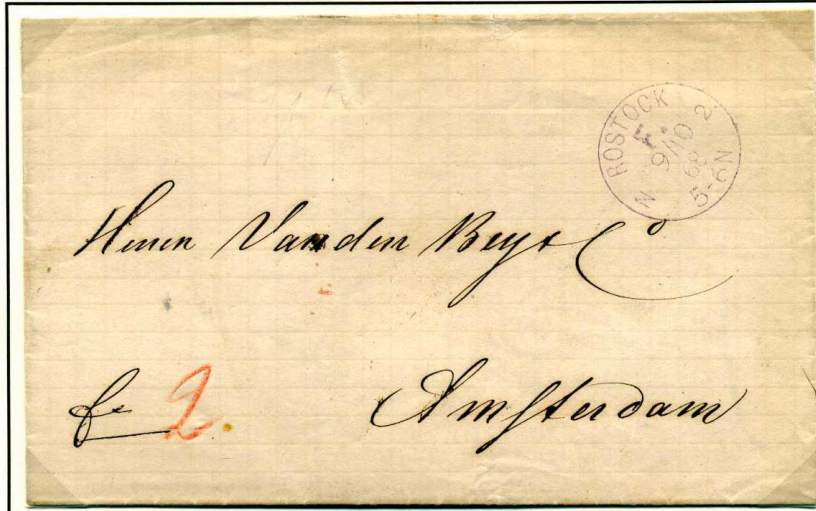 ROSTOCK
9/10
68
5-6N
N 2
Herren Van den Bergs & Co
fr 2.
Amsterdam